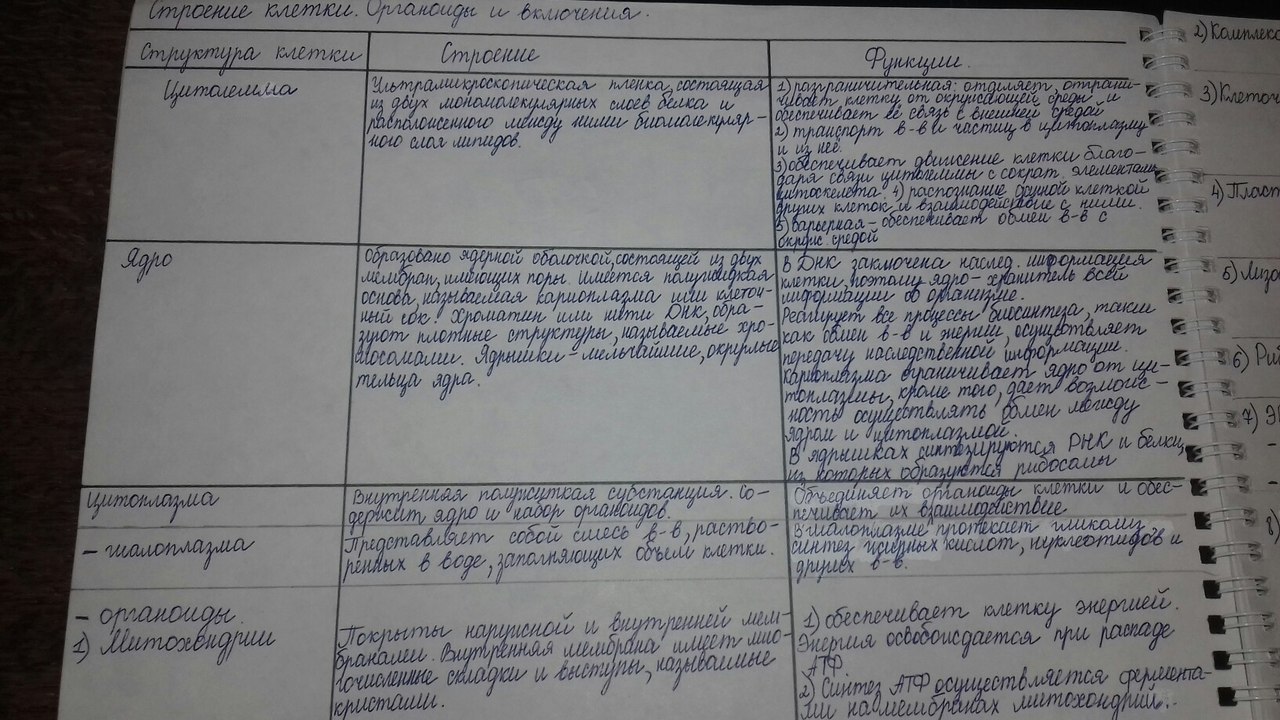 Строение клетки. Органоиды и включения.
Структура клетки
Строение
Функции.
Цитолемма
Ультрамикроскопическая пленка, состоящая
из двух мономолекулярных слоев белка и
расположенного между ними бимолекуляр-
ного слоя липидов.
1) разграничительная: отделяет, отграни-
чивает клетку от окружающей среды и
обеспечивает её связь с внешней средой
2) транспорт в-в и частиц в цитоплазму
и из нее.
3) обеспечивает движение клетки благо-
даря связи цитолеммы с сократ. элементами
цитоскелета 4) распознание данной клеткой
других клеток и взаимодействие с ними.
5) барьерная - обеспечивает обмен в-в с
окруж. средой
Ядро
Образовано ядерной оболочкой, состоящей из двух
мембран, имеющих поры. Имеется полужидкая
основа, называемая кариоплазма или клеточ-
ный сок. Хроматин или нити ДНК, обра-
зуют плотные структуры, называемые хро-
мосомами. Ядрышки - мельчайшие, округлые
тельца ядра.
В ДНК заключена наслед. информация
клетки, поэтому ядро - хранитель всей
информации об организме.
Реагирует все процессы биосинтеза, такие
как обмен в-в и энергии, осуществляет
передачу наследственной информации.
Кариоплазма ограничивает ядро от ци-
топлазмы, кроме того, дает возмож-
ность осуществлять обмен между
ядром и цитоплазмой.
В ядрышках синтезируются РНК и белки,
из которых образуются рибосомы
Цитоплазма
Внутренная полужуткая субстанция. Со-
держит ядро и набор органоидов.
Объединяет органоиды клетки и обес-
печивает их взаимодействие
- гиалоплазма
Представляет собой смесь в-в, раство-
ренных в воде, заполняющих объем клетки.
В гиалоплазме протекает гликолиз,
синтез жирных кислот, нуклеотидов и
других в-в.
- органоиды.
1) Митохондрии
Покрыты наружной и внутренней мем-
бранами. Внутренняя мембрана имеет мно-
гочисленные складки и выступы, называемые
кристами.
1) обеспечивает клетку энергией.
Энергия освобождается при распаде
АТФ
2) Синтез АТФ осуществляется фермента-
ми на мембранах митохондрий.
2) Комплекс
3) Клеточ
4) Пласт
5) Лизо
6) Риб
7) Э
-
-
8)